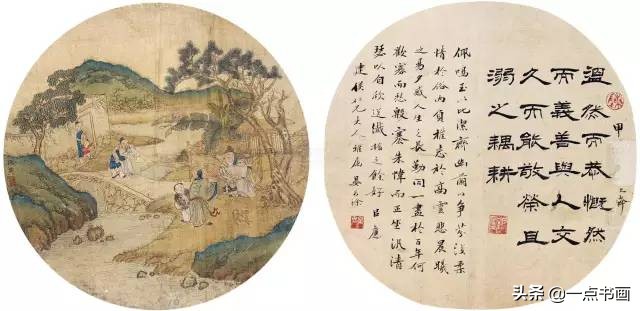 溫然而恭慨然
而義善與人交
久而能敬榮且
溺之耦耕
甲
佩鳴玉以比潔齊幽蘭以爭芬淡柔
情於俗內負雅志於高雲悲晨曦
之易夕感人生之長勤同一盡於百年何
歡寡而愁殷褰朱幃而正坐汎清
瑟以自欣送纖指之餘好
仁兄大人雅屬
头条 @一点书画